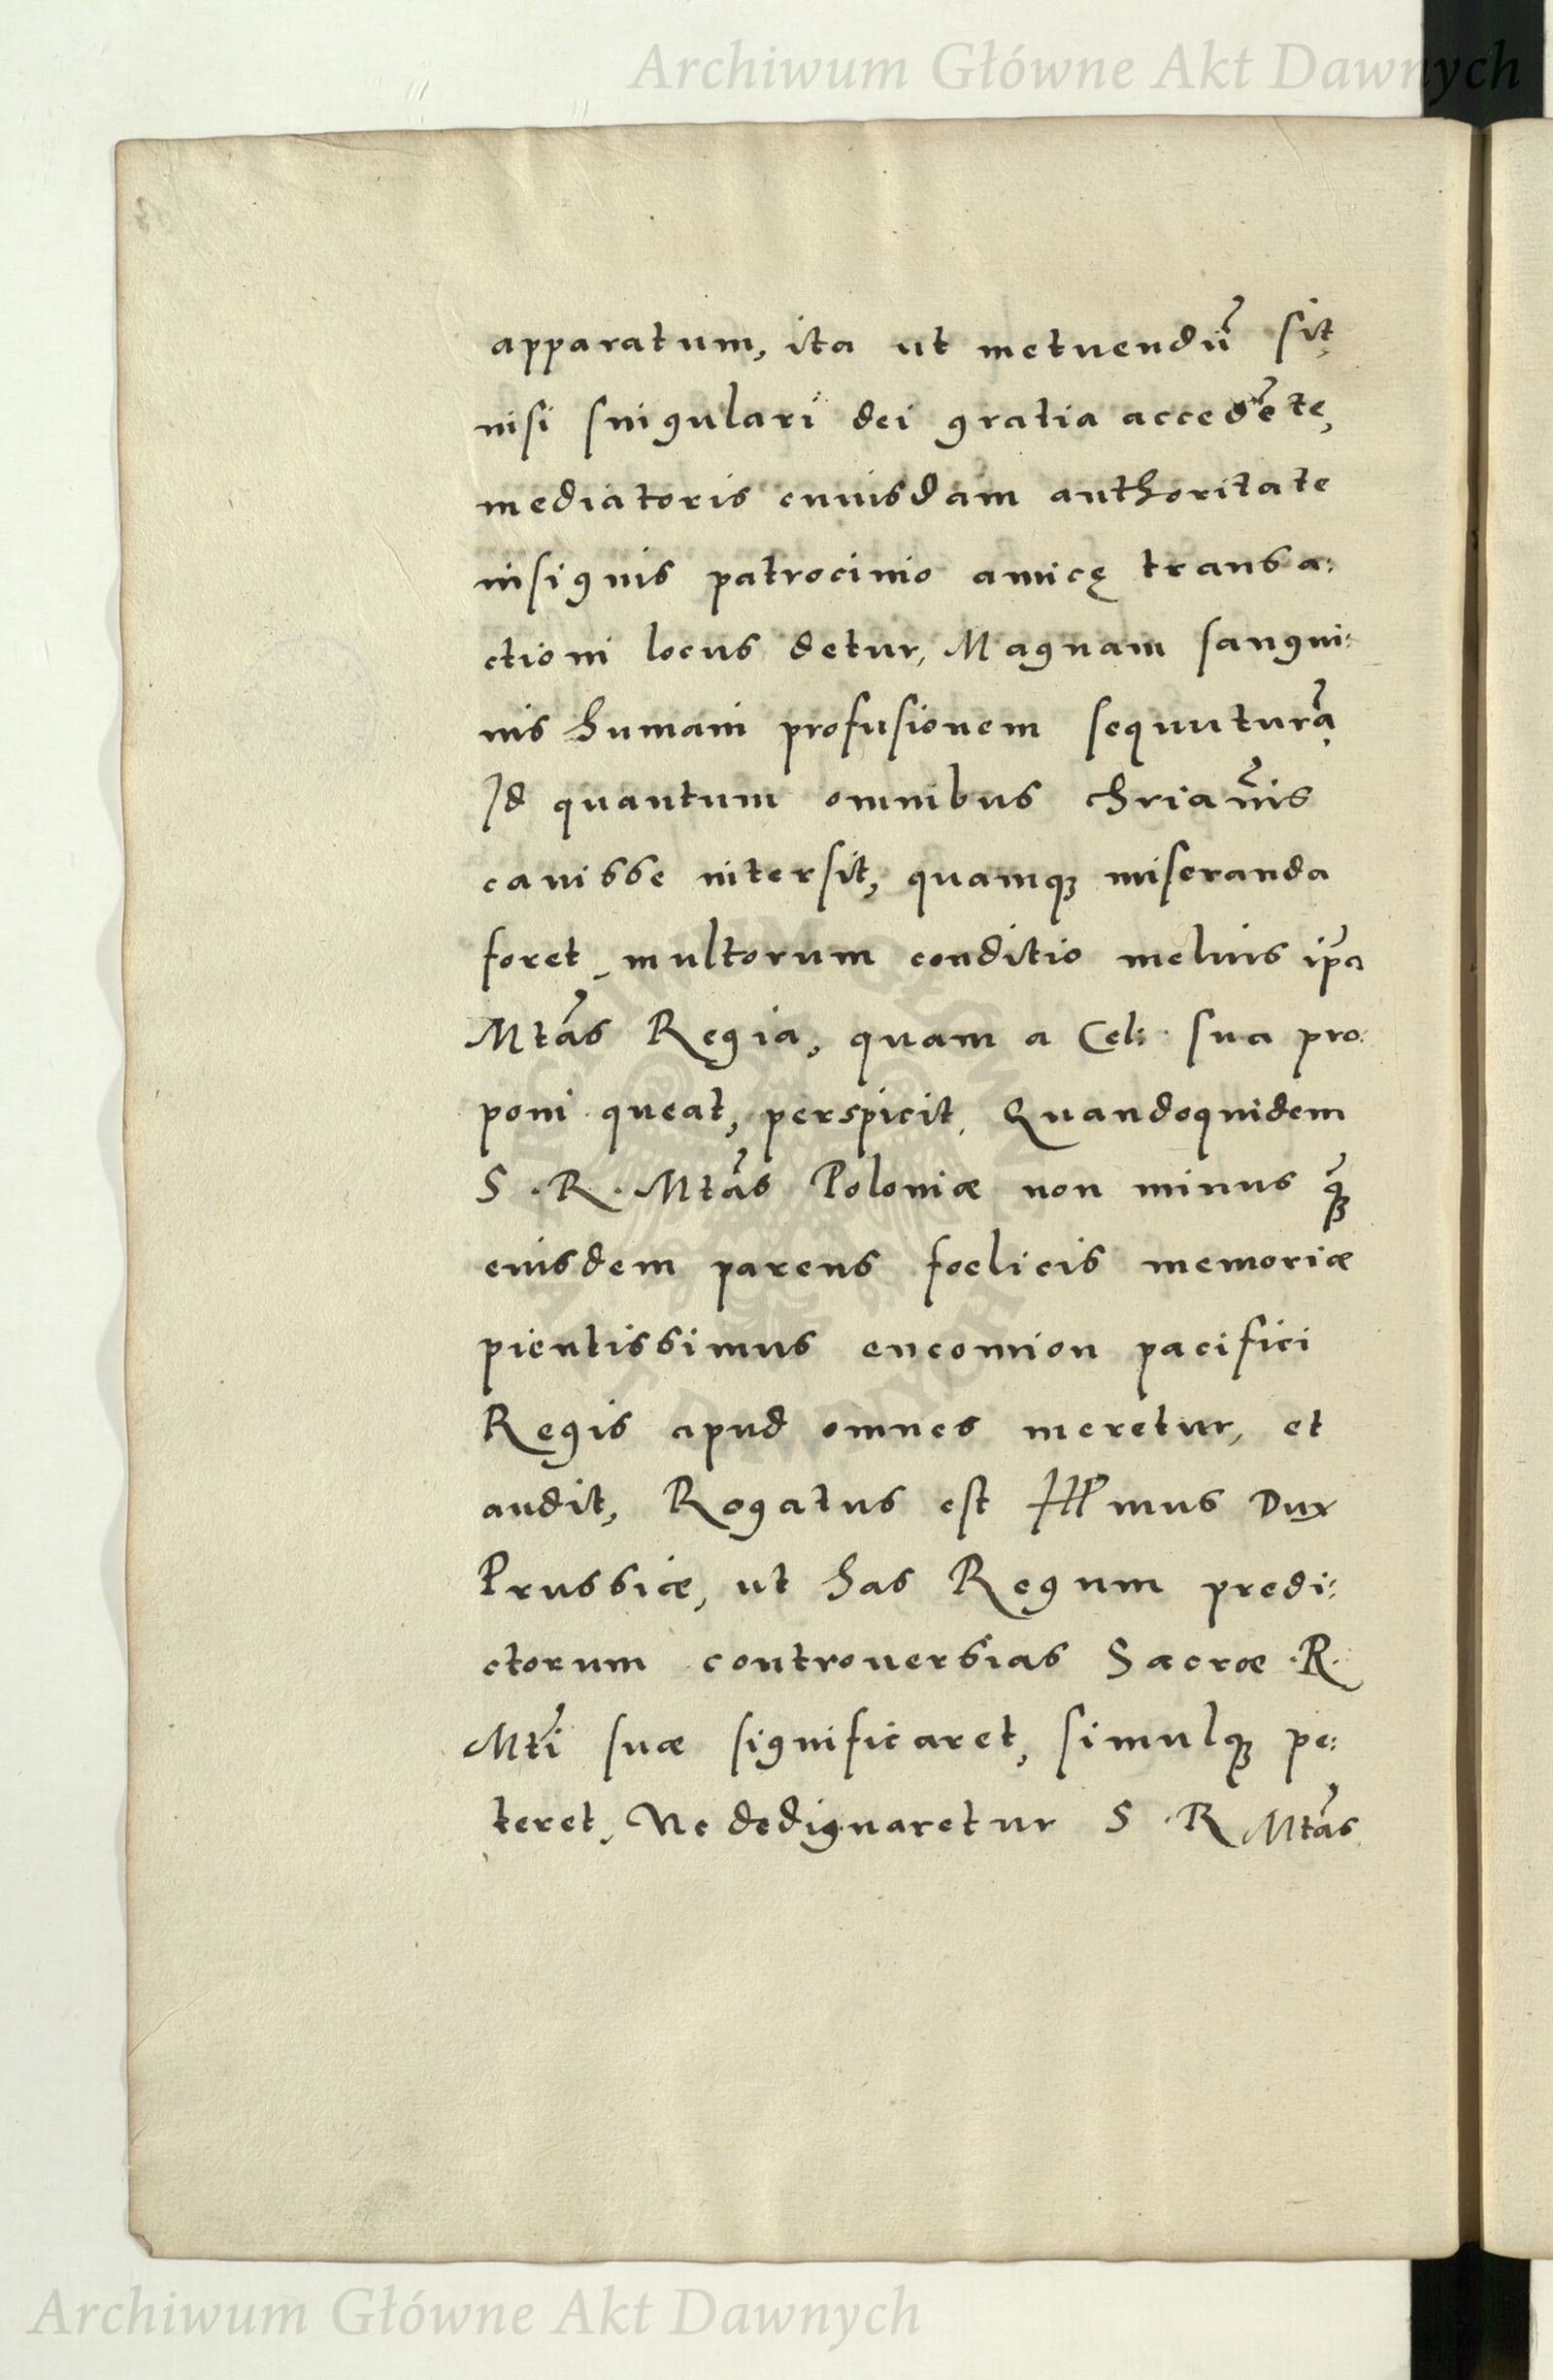 Archiwum Główne Akt Dawnych
apparatum, ita ut metuendũ sit,
nisi singulari dei gratia accedẽte,
mediatoris cuiusdam authoritate
insignis patrocinio amicę transa:
ctioni locus detur, Magnam sangui:
nis humani profusionem sequuturã,
Id quantum omnibus chriañis
cauisse intersit, quamqꝫ miseranda
foret, multorum conditio melius ip̃a
Mtãs Regia, quam a Cel: sua pro:
poni queat, perspicit, Quandoquidem
S. R. Mtãs Poloniæ non minus q̃ꝫ
eiusdem parens foelicis memoriæ
pientissimus encomion pacifici
Regis apud omnes meretur, et
audit, Rogatus est Illmus Dux
Prussiæ, ut has Regum predi:
ctorum controuersias Sacræ .R.
Mtĩ suæ significaret, simulqꝫ pe:
teret, Ne dedignaretur S. R Mtãs
Archiwum Główne Akt Dawnych